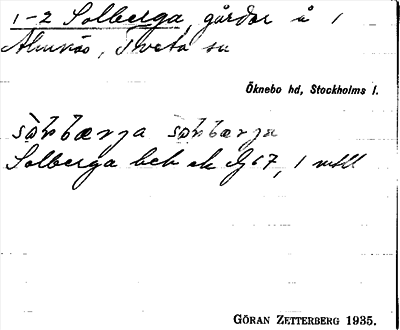 1-2 Solberga, gårdar å 1
Almnäs, Tveta sn
Öknebo hd, Stockholms l.
Solberga beb ek Bj 67, 1 mtl
GÖRAN ZETTERBERG 1935.